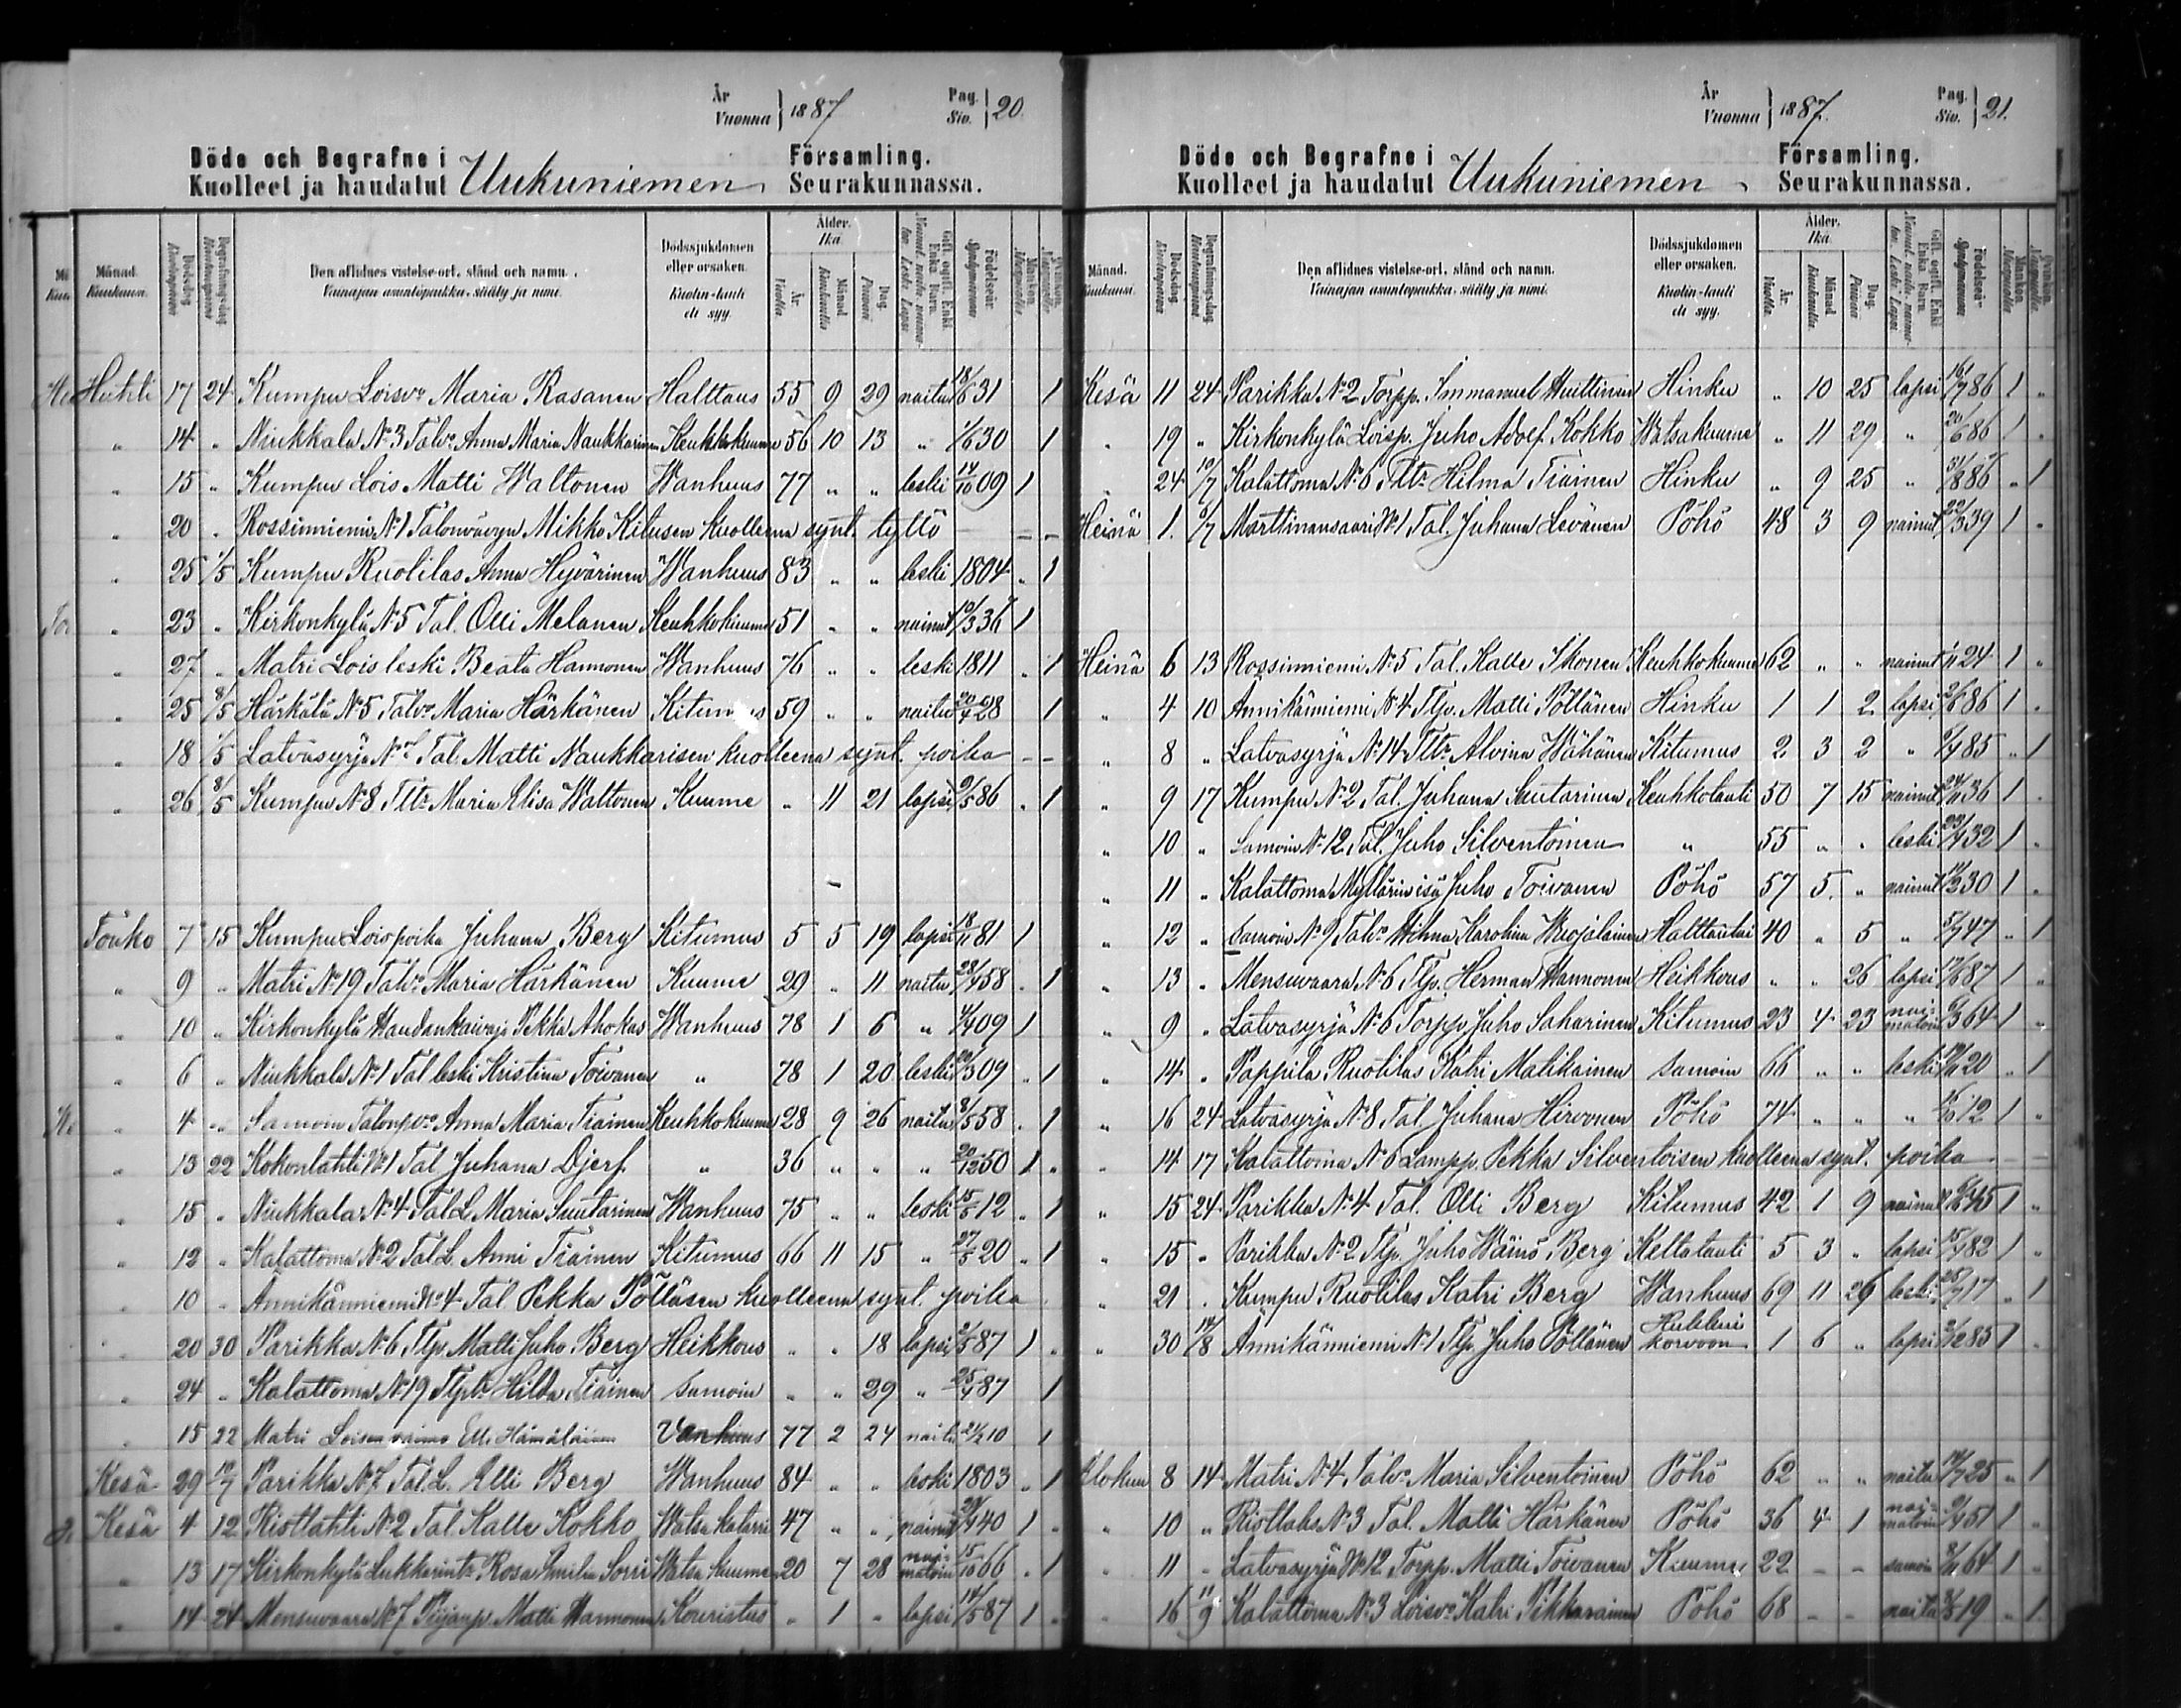 År
Vuonna 1887 Pag.
Siv. 20.
Döde och Begrafne i Församling.
Kuolleet ja haudatut Uukuniemen Seurakunnassa.
Månad. Kuukausi. Dödsdag Kuolinpäivä Begrafningsdag Hautauspäivä Den aflidnes vistelse-ort, stånd och namn. Vainajan asuntopaikka, sääty ja nimi. Dödssjukdomen eller orsaken. Kuolin-tauti eli syy. Ålder. Ikä. År. Vuotta. Månad Kuukautta Dag. Päivää Gift, ogift, Enkl. Enka Barn. Födelseår Syntymävuosi Mankön. Miespuolia Qvinkön.
Huhti 17 24 Kumpu Loisvo Maria Rasanen Halttaus 55 9 29 naitu 18/6 31 1
" 14 " Niukkala No 3 Talvo Anna Maria Naukkarinen Keuhkokuume 56 10 13 " 1/6 30 1
" 15 " Kumpu Lois Matti Waltonen Wanhuus 77 " " leski 14/10 09 1
" 20 " Rossinniemi No 1 Talonvävyn Mikko Kitusen kuolleena synt. tyttö — — —
" 25 1/5 Kumpu Ruotilas Anna Hyvärinen Wanhuus 83 " " leski 1804 " 1
" 23 " Kirkonkylä No 5 Tal. Olli Melanen Keuhkokuume 51 " " nainut 10/3 36 1
" 27 " Matri Lois leski Beata Hannonen Wanhuus 76 " " leski 1811 " 1
" 25 8/5 Härkälä No 5 Talvo Maria Härkänen Kitumus 59 " " naitu 20/4 28 1
" 18 1/5 Latvasyrjä No Tal. Matti Naukkarisen kuolleena synt. poika — — —
" 26 8/5 Kumpu No 8 Tltr Maria Elisa Waltonen Kuume " 11 21 lapsi 9/5 86 " 1
Touko 7 15 Kumpu Lois poika Juhana Berg Kitumus 5 5 19 lapsi 18/11 81 1
" 9 " Matri No 19 Talvo Maria Härkänen Kuume 29 " 11 naitu 28/4 58 " 1
" 10 " Kirkonkylä Haudankaivaja Pekka Ahokas Wanhuus 78 1 6 " 4/4 09 1
" 6 " Niukkala No 1 Tal leski Kristina Toivanen " 78 1 20 leski /3 09 " 1
" 4 " Samoin Talonpvo Anna Maria Tiainen Keuhkokuume 28 9 26 naitu 8/5 58 " 1
" 13 22 Kokonlahti No 1 Tal Juhana Djerf " 36 " " " 20/12 50 1 "
" 15 " Niukkala No 4 Tal L Maria Suutarinen Wanhuus 75 " " leski 15/5 12 " 1
" 12 " Kalattoma No 2 Tal L. Anni Tiainen Kitumus 66 11 15 " 27/5 20 " 1
" 10 " Annikänniemi No 4 Tal. Pekka Pölläsen kuolleena synt. poika
" 20 30 Parikka No 6 Tlp Matti Juho Berg Heikkous " " 18 lapsi 2/5 87 1 "
" 24 " Kalattoma No 19 Tlptr Hilda Tiainen samoin " " 29 " 25/4 87 1
" 15 22 Matri Loisen vaimo Elli Hämäläinen Vanhuus 77 2 24 naitu 21/2 10 1
Kesä 29 10/7 Parikka No 7 Tal. L. Elli Berg Wanhuus 84 " " leski 1803 " 1
Kesä 4 12 Ristlahti No 2 Tal Kalle Kokko Watsa katarri 47 " " nainut /4 40 1 "
" 13 17 Kirkonkylä Lukkarintr Rosa Emilia Sorri Watsa kuume 20 7 28 nai-matoin 15/10 66 " 1
" 14 24 Mensuvaara No 7 Matti Hannonen Kouristus " 1 " lapsi 14/5 87 1 "
År
Vuonna 1887. Pag.
Siv. 21.
Döde och Begrafne i Församling.
Kuolleet ja haudatut Uukuniemen Seurakunnassa.
Månad. Kuukausi. Dödsdag Kuolinpäivä Begrafningsdag Hautauspäivä Den aflidnes vistelse-ort, stånd och namn. Vainajan asuntopaikka, sääty ja nimi. Dödssjukdomen eller orsaken. Kuolin-tauti eli syy. Ålder. Ikä. År. Vuotta. Månad Kuukautta Dag. Päivää Gift, ogift, Enkl. Enka Barn. Födelseår Syntymävuosi Mankön. Miespuolia Qvinkön.
Kesä 11 24 Parikka No 2 Torpp. Immanuel Huittinen Hinku " 10 25 lapsi 16/7 86 1 "
" 19 " Kirkonkylä Loisp. Juho Adolf Kokko Watsakuume " 11 29 " 20/6 86 1 "
" 24 10/7 Kalattoma No 6 Tltr Hilma Tiainen Hinku " 9 25 " 31/8 86 " 1
Heinä 1. /7 Marttinansaari No 1 Tal. Juhana Levänen Pöhö 48 3 9 nainut 22/3 39 1 "
Heinä 6 13 Rossinniemi No 5 Tal. Kalle Ikonen Keuhkokuume 62 " " nainut 1/11 24 1 "
" 4 10 Annikänniemi No 4 Tlp. Matti Pöllänen Hinku 1 1 2 lapsi 2/6 86 1 "
" 8 " Latvasyrjä No 14 Tltr Alvina Wähänen Kitumus 2 3 2 " 6/4 85 " 1
" 9 17 Kumpu No 2 Tal. Juhana Suutarinen Keuhkotauti 50 7 15 nainut 24/11 36 1 "
" 10 " Samoin No 12 Tal. Juho Silventoinen " 55 " " leski 23/4 32 1 "
" 11 " Kalattoma Myllärin isä Juho Toivanen Pöhö 57 5. " nainut /2 30 1 "
" 12 " Samoin No 9 Talvo Karolina Halttautai 40 " 5 " 5/7 47 " 1
" 13 " Mensuvaara No 6 Tlp. Herman Hannonen Heikkous " " 26 lapsi 17/6 87 1 "
" 9 " Latvasyrjä No 6 Torpp Juho Saharinen Kitumus 23 4 23 nai-matoin /3 64 1 "
" 14 " Pappila Ruotilas Katri Matikainen samoin 66 " " leski /11 20 " 1
" 16 24 Latvasyrjä No 8 Tal. Juhana Hirvonen Pöhö 74 " " " /10 12 1 "
" 14 17 Kalattoma No 6 Lampp. Pekka Silventoisen kuolleena synt. poika — —
" 15 24 Parikka No 4 Tal. Olli Berg Kitumus 42 1 9 nainut 6/6 45 1 "
" 15 " Parikka No 2 Tlp Juho Wäinö Berg Keltatauti 5 3 " lapsi 15/4 82 1 "
" 21 " Kumpu Ruotilas Katri Berg Wanhuus 69 11 26 leski 25/7 17 " 1
" 30 14/8 Annikänniemi No 1 Tlp. Juho Pöllänen korvoon 1 6 " lapsi /12 85 1 "
Elokuu 8 14 Matri No 4. Talvo Maria Silventoinen Pöhö 62 " " naitu 14/7 25 " 1
" 10 " Ristlaks No 3 Tal. Matti Härkänen Pöhö 36 4 1 nai-matoin 9/4 51 1 "
" 11 " Latvasyrjä No 12 Torpp. Matti Toivanen Kuume 22 - - samoin 8/11 64 1 "
" 16 11/9 Kalattoma No 3 Loisvo Katri Pikkarainen Pöhö 68 - - naitu /5 19 " 1